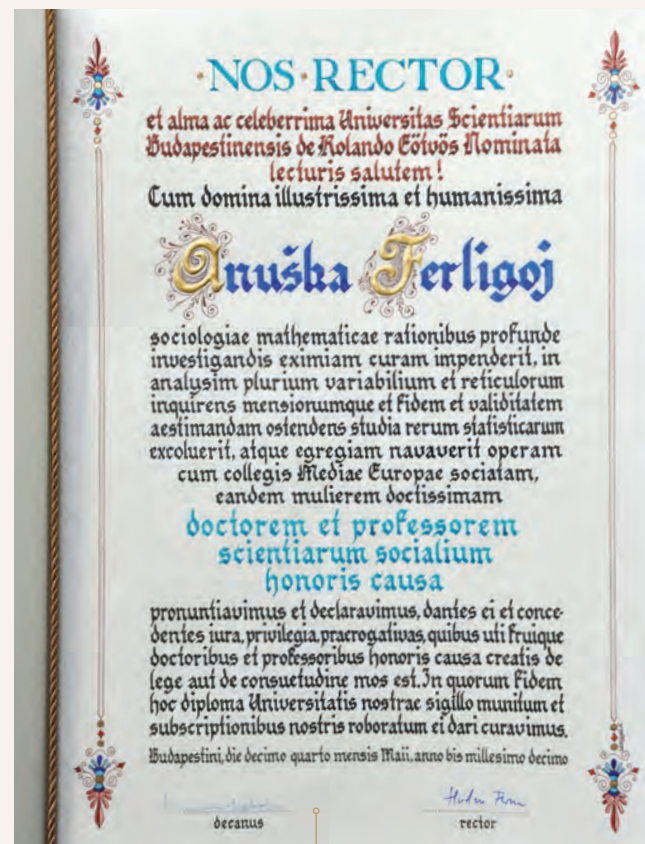 ·NOS·RECTOR·
et alma ac celeberrima Universitas Scientiarum
Budapestinensis de Rolando Eötvös Nominata
lecturis salutem!
Cum domina illustrissima et humanissima
Anuška Ferligoj
sociologiae mathematicae rationibus profunde
investigandis eximiam curam impenderit, in
analysim plurium variabilium et reticulorum
inquirens mensionumque et fidem et validitatem
aestimandam ostendens studia rerum statisticarum
excoluerit, atque egregiam navaverit operam
cum collegis Mediae Europae sociatam,
eandem mulierem doctissimam
doctorem et professorem
scientiarum socialium
honoris causa
pronuntiavimus et declaravimus, dantes ei et conce-
dentes iura, privilegia, praerogativas, quibus uti fruique
doctoribus et professoribus honoris causa creatis de
lege aut de consuetudine mos est. In quorum fidem
hoc diploma Universitatis nostrae sigillo munitum et
subscriptionibus nostris roboratum ei dari curavimus.
Budapestini, die decimo quarto mensis Maii, anno bis millesimo decimo
decanus
rector